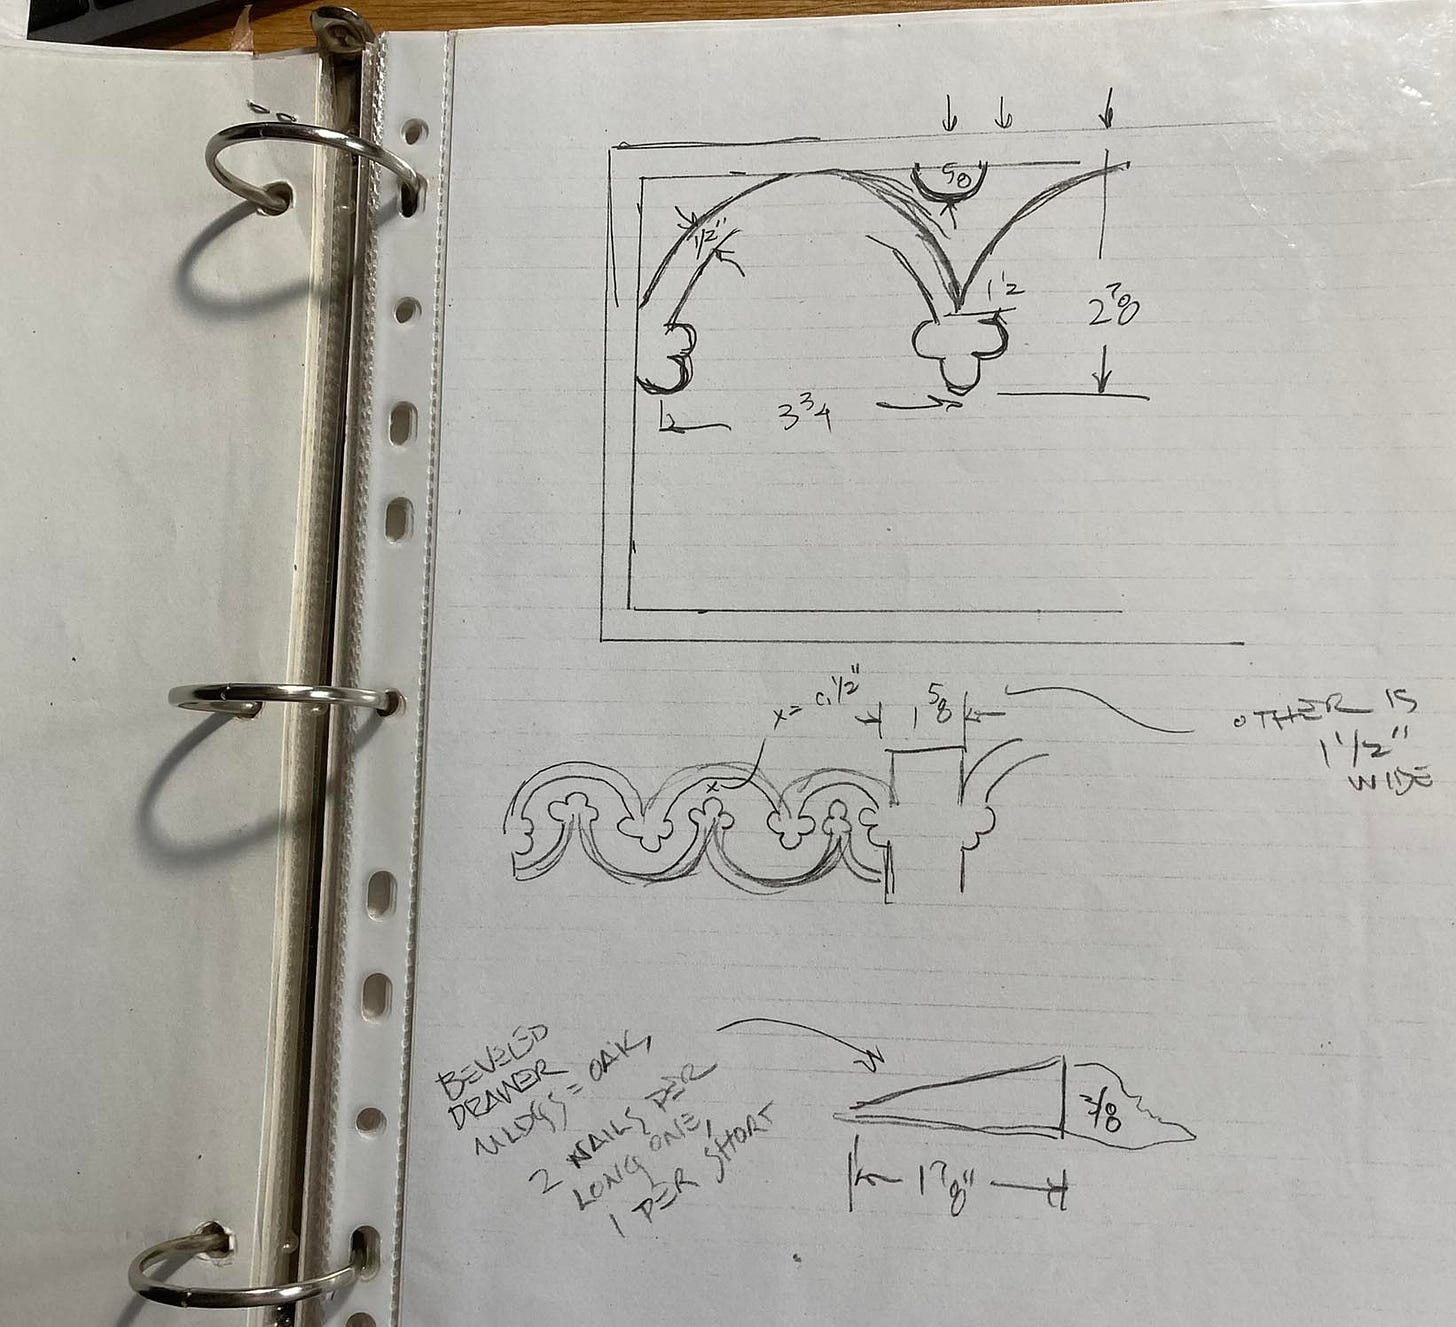 5/8
1/2"
1 1/2
2 7/8
3 3/4
x = c. 1/2"
1 5/8
OTHER IS
1 1/2"
WIDE
BEVELED
DRAWER
MLDGS = OAK,
2 NAILS PER
LONG ONE,
1 PER SHORT
1 7/8"